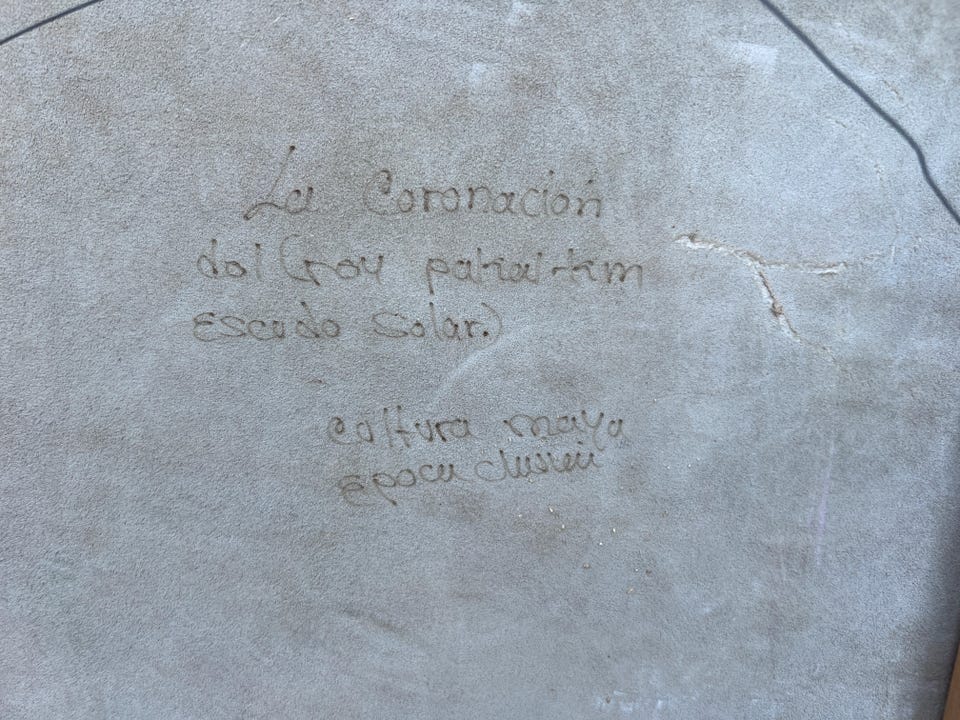 La Coronación
del (rey pakal-kim
escudo solar.)
cultura maya
epoca clasica